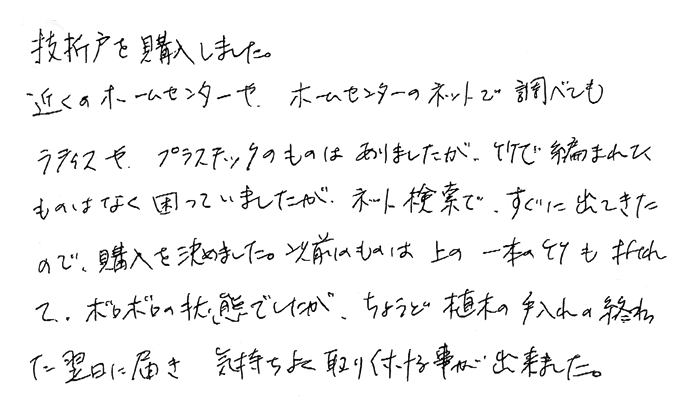 枝折戸を購入しました。
近くのホームセンターや、ホームセンターのネットで調べても
ラティスや、プラスチックのものはありましたが、竹で編まれてる
ものはなく困っていましたが、ネット検索で、すぐに出てきた
ので、購入を決めました。以前のものは上の一本の竹も折れ
て、ボロボロの状態でしたが、ちょうど植木の手入れの終わっ
た翌日に届き 気持ちよく取り付ける事が出来ました。